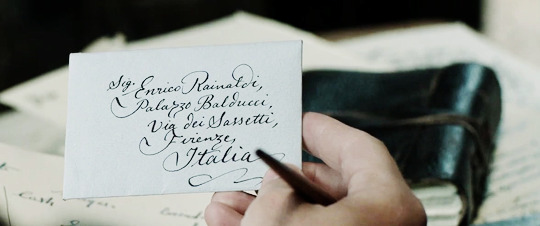 Sig. Enrico Rainaldi,
Palazzo Balducci,
Via dei Sassetti,
Firenze,
Italia